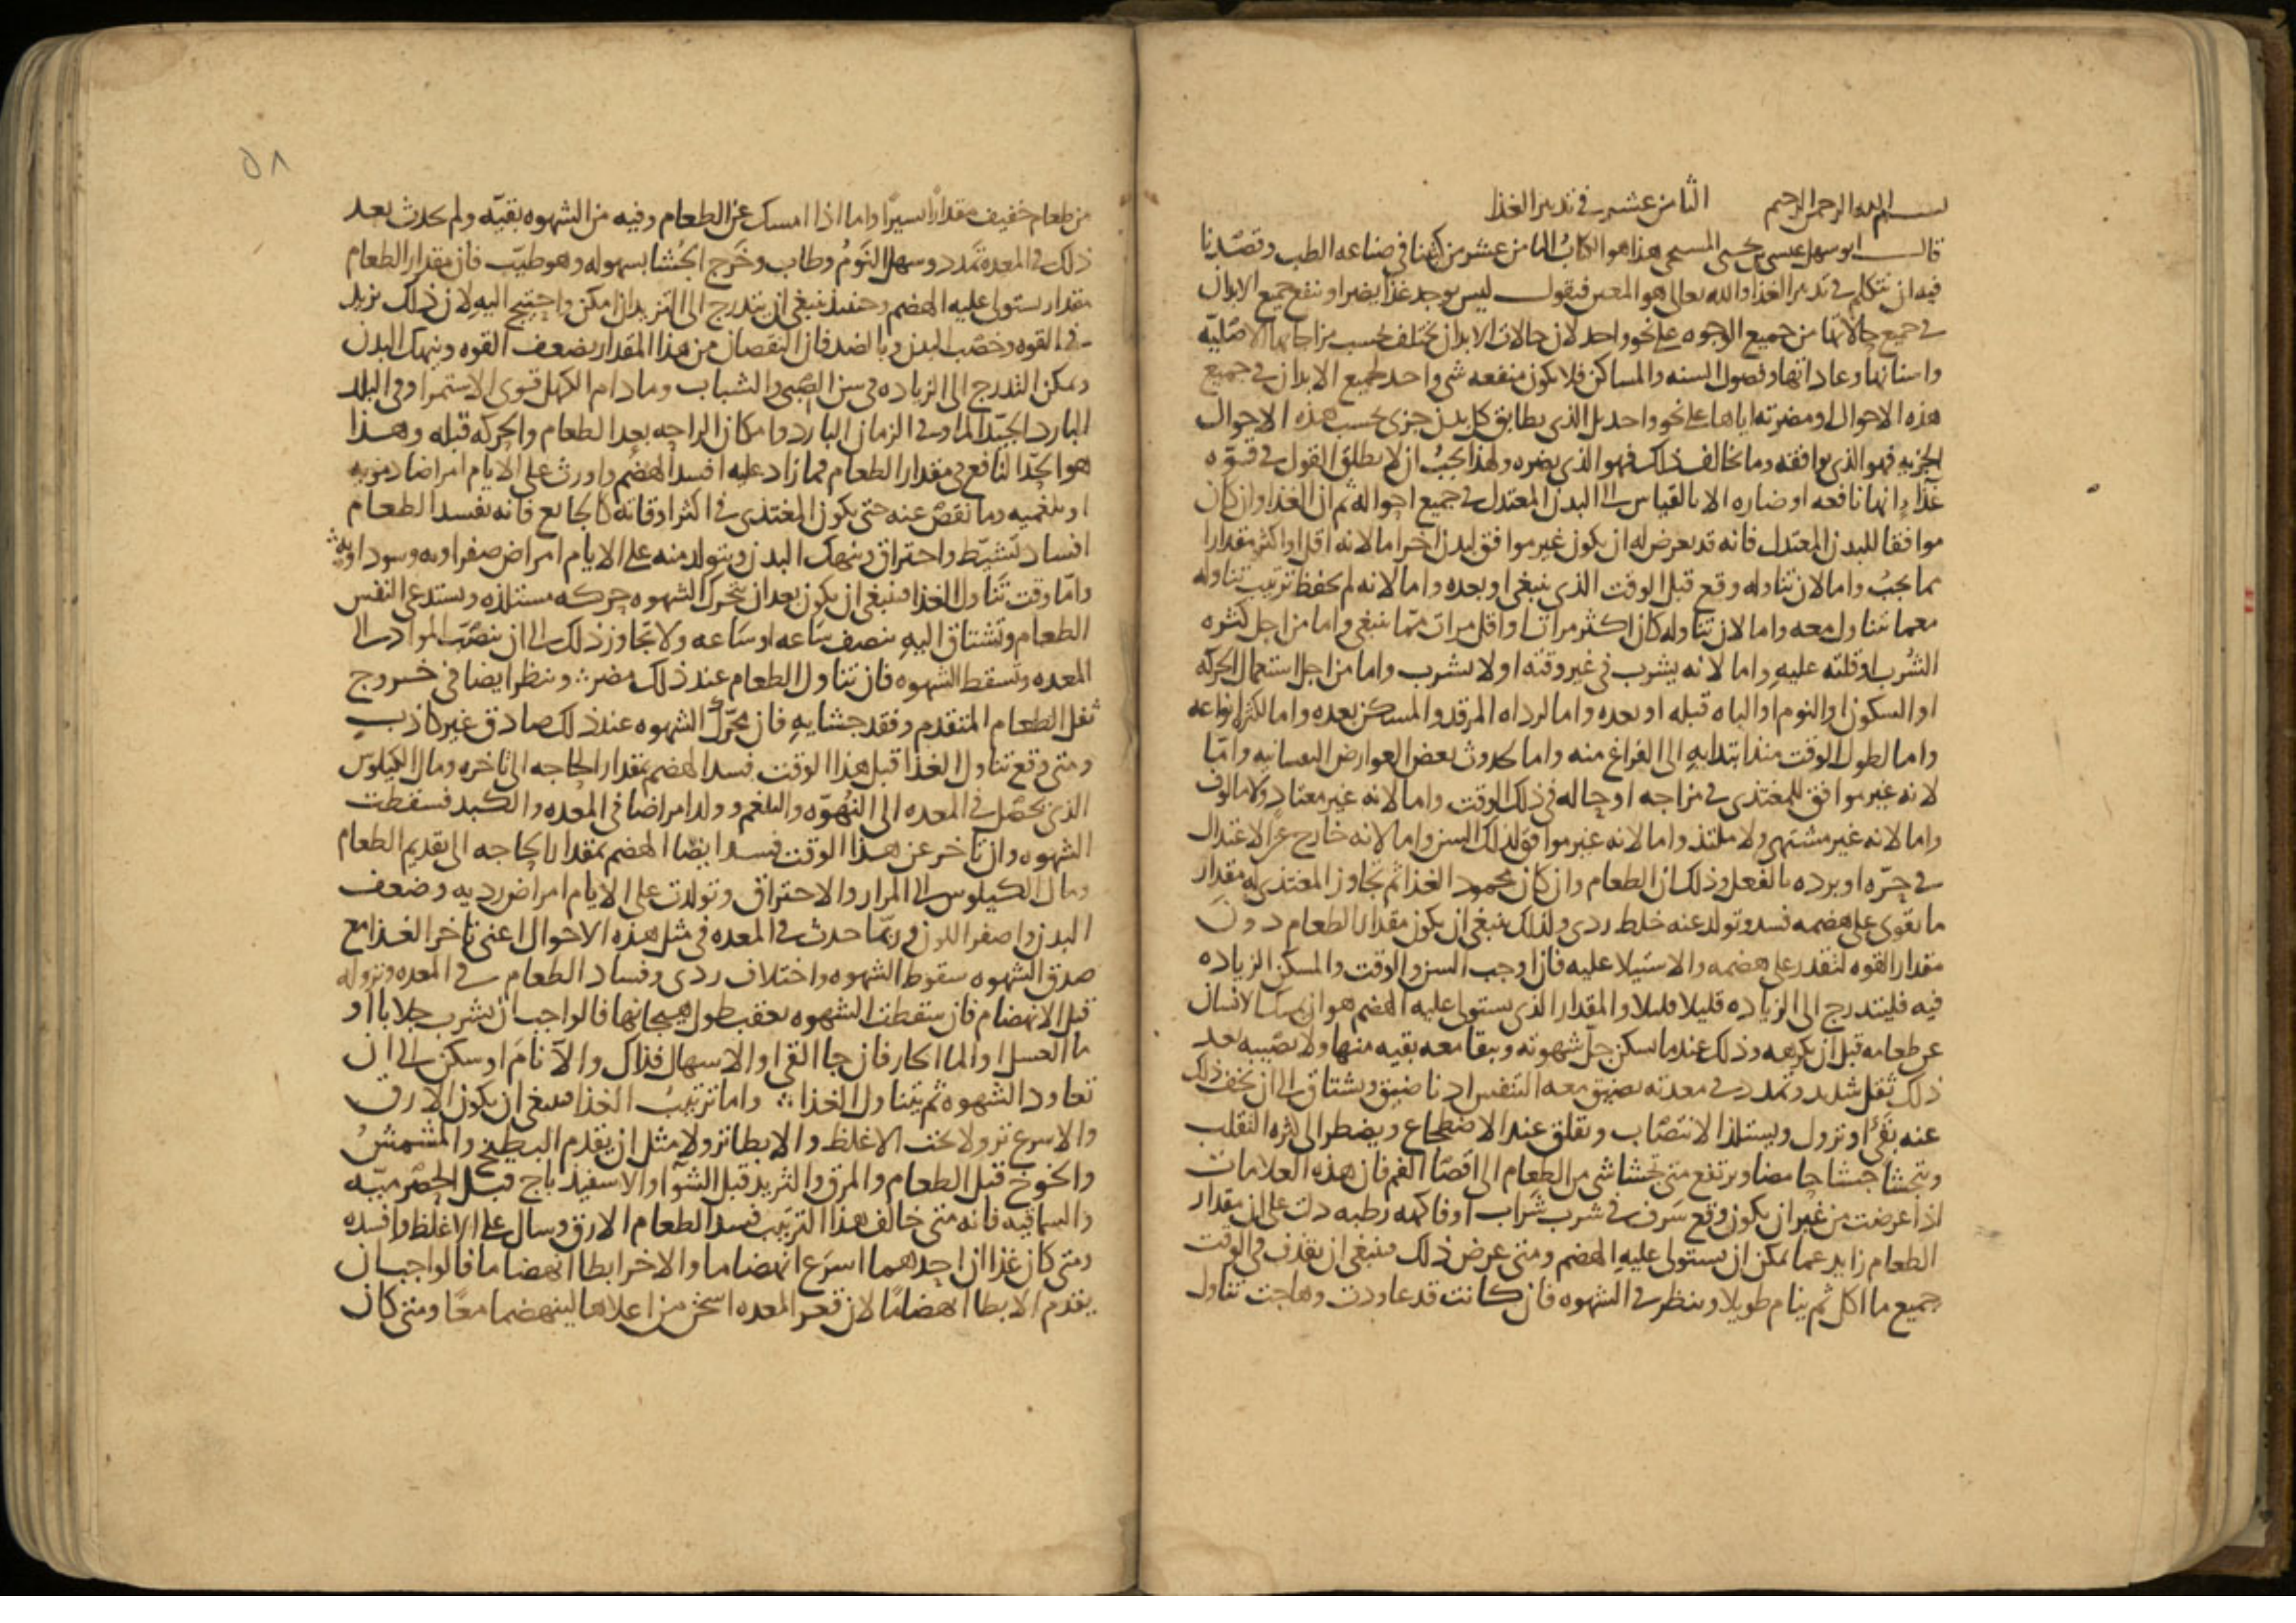 بسم الله الرحمن الرحيم الثامن عشر في تدبير الغذا
قال ابو سهل عيسى بن يحيى المسيحي هذا هو الكتاب الثامن عشر من كتبنا في صناعه الطب وقصدنا
فيه ان نتكلم في تدبير الغذا والله تعالى هو المعين فنقول ليس يوجد غذا يضر او ينفع جميع الابدان
في جميع حالاتها من جميع الوجوه على نحو واحد لان حالات الابدان تختلف بحسب مزاجاتها الاصليه
واسنانها وعاداتها وفصول السنه والمساكن فلا يكون منفعه شي واحد لجميع الابدان في جميع
هذه الاحوال او مضرته اياها على نحو واحد بل الذي يطابق كل بدن جزي بحسب هذه الاحوال
الجزيه فهو الذي يوافقه وما يخالف ذلك فهو الذي يضره ولهذا يجب ان لا يطلق القول في قوه
غذا انها نافعه او ضاره الا بالقياس الى البدن المعتدل في جميع احواله ثم ان الغذا وان كان
موافقا للبدن المعتدل فانه قد يعرض له ان يكون غير موافق لبدن اخر اما لانه اقل او اكثر مقدارا
مما يجب واما لان تناوله وقع قبل الوقت الذي ينبغي او بعده واما لانه لم يحفظ ترتيب تناوله
مع ما يتناول معه واما لان تناوله كان اكثر مرات او اقل مرات مما ينبغي واما من اجل كثره
الشرب او قلته عليه واما لانه يشرب في غير وقته او لا يشرب واما من اجل استعمال الحركه
او السكون او النوم او الباه قبله او بعده واما لرداه المرقد والمسكن بعده واما لكثره انواعه
واما لطول الوقت منذ ابتدايه الى الفراغ منه واما لحدوث بعض العوارض النفسانيه واما
لانه غير موافق للمغتذي في مزاجه او حاله في ذلك الوقت واما لانه غير معتاد ولا مالوف
واما لانه غير مشتهى ولا ملتذ واما لانه غير موافق لذلك السن واما لانه خارج عن الاعتدال
في حره او برده بالفعل وذلك ان الطعام وان كان محمود الغذا ثم تجاوز المغتذي به مقدار
ما يقوى على هضمه فسد وتولد عنه خلط ردي ولذلك ينبغي ان يكون مقدار الطعام دون
مقدار القوه لتقدر على هضمه والاستيلا عليه فان اوجب السن والوقت والمسكن الزياده
فيه فليتدرج الى الزياده قليلا قليلا والمقدار الذي يستولي عليه الهضم هو ان يمسك الانسان
عن طعامه قبل ان يكرهه وذلك عندما يسكن جل شهوته ويبقا معه بقيه منها ولا يصيبه بعد
ذلك ثقل شديد وتمدد في معدته يضيق معه التنفس ادنا ضيق ويشتاق الى ان يخف ذلك
عنه بقي او نزول ويستلذ الانتصاب ويقلق عند الاضطجاع ويضطر الى كثره التقلب
ويتجشا جشا حامضا ويرتفع متى تجشا شي من الطعام الى اقصا الفم فان هذه العلامات
اذا عرضت من غير ان يكون وقع سرف في شرب شراب او فاكهه رطبه دلت على ان مقدار
الطعام زايد عما يمكن ان يستولي عليه الهضم ومتى عرض ذلك فينبغي ان يقذف في الوقت
جميع ما اكل ثم ينام طويلا وينظر في الشهوه فان كانت قد عاودت وهاجت تناول
٥٨
من طعام خفيف مقدارا يسيرا واما اذا امسك عن الطعام وفيه من الشهوه بقيه ولم يحدث بعد
ذلك في المعده تمدد وسهل النوم وطاب وخرج الجشا بسهوله وهو طيب فان مقدار الطعام
مقدار يستولي عليه الهضم وحينيذ ينبغي ان يتدرج الى التزيد ان امكن واحتيج اليه لان ذلك يزيد
في القوه وخصب البدن وبالضد فان النقصان من هذا المقدار يضعف القوه وينهك البدن
ويمكن التدرج الى الزياده في سن الصبى والشباب وما دام الكهل قوي الاستمرا وفي البلد
البارد الجيد الماء وفي الزمان البارد وامكان الراحه بعد الطعام والحركه قبله وهذا
هو الحد النافع في مقدار الطعام فما زاد عليه افسد الهضم واورث على الايام امراضا دمويه
او بلغميه وما نقص عنه حتى يكون المغتذي في اكثر اوقاته كالجايع فانه يفسد الطعام
افساد تشيط واحتراق وينهك البدن ويتولد منه على الايام امراض صفراويه وسوداويه
واما وقت تناول الغذا فينبغي ان يكون بعد ان تتحرك الشهوه حركه مستلذه ويستدعي النفس
الطعام وتشتاق اليه بنصف ساعه او ساعه ولا يتجاوز ذلك الى ان تنصب المواد الى
المعده وتسقط الشهوه فان تناول الطعام عند ذلك مضر وينظر ايضا في خروج
ثقل الطعام المتقدم وفقد جشايه فان تحرك الشهوه عند ذلك صادق غير كاذب
ومتى وقع تناول الغذا قبل هذا الوقت فسد الهضم بمقدار الحاجه الى تاخره ومال الكيلوس
الذي يحصل في المعده الى النهوه والبلغم وولد امراضا في المعده والكبد فسقطت
الشهوه وان تاخر عن هذا الوقت فسد ايضا الهضم بمقدار الحاجه الى تقديم الطعام
ومال الكيلوس الى المرار والاحتراق وتولدت على الايام امراض رديه وضعف
البدن واصفر اللون وربما حدث في المعده في مثل هذه الاحوال اعني تاخر الغذا مع
صدق الشهوه سقوط الشهوه واختلاف ردي وفساد الطعام في المعده ونزوله
قبل الانهضام فان سقطت الشهوه بعقب طول هيجانها فالواجب ان يشرب جلابا او
ما العسل او الما الحار فان جا القي او الاسهال فذاك والا نام او سكن الى ان
تعاود الشهوه ثم يتناول الغذا واما ترتيب الغذا فينبغي ان يكون الارق
والاسرع نزولا تحت الاغلظ والابطا نزولا مثل ان يقدم البطيخ والمشمش
والخوخ قبل الطعام والمرق والثريد قبل الشوا والاسفيذباج قبل الحصرميه
والسماقيه فانه متى خالف هذا الترتيب فسد الطعام الارق وسال على الاغلظ وافسده
ومتى كان غذاان احدهما اسرع انهضاما والاخر ابطا انهضاما فالواجب ان
يقدم الابطا انهضاما لان قعر المعده اسخن من اعلاها لينهضما معا ومتى كان